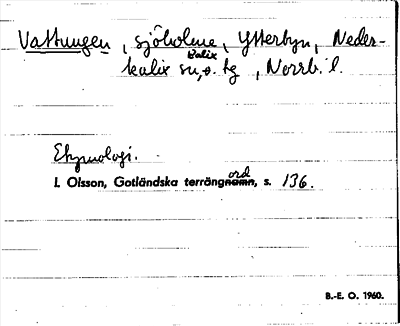 Vattungen, sjöholme, Ytterbyn, Neder-
Kalix
kalix sn, o. tg, Norrb. l.
Etymologi.
ord
I. Olsson, Gotländska terrängnamn, s. 136.
B.-E. O. 1960.